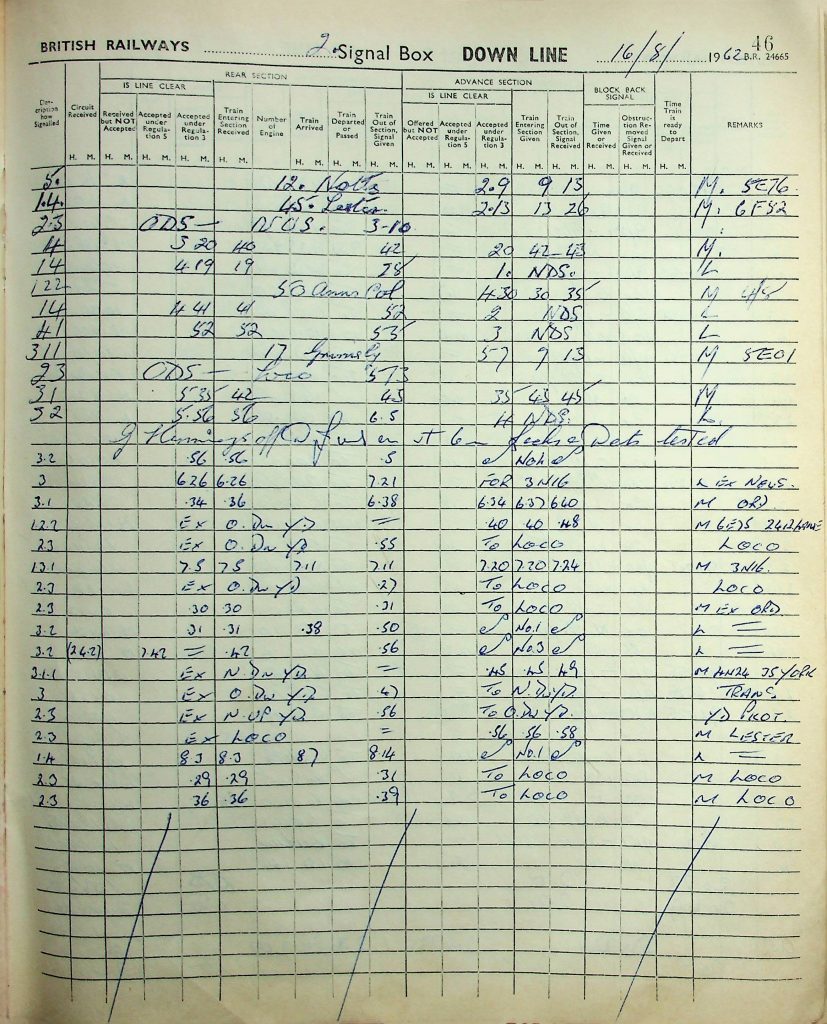 BRITISH RAILWAYS 2. Signal Box DOWN LINE 16/8/ 1962 46
B.R. 24665
REAR SECTION ADVANCE SECTION
IS LINE CLEAR IS LINE CLEAR BLOCK BACK SIGNAL
Description how Signalled Circuit Received Received but NOT Accepted Accepted under Regulation 5 Accepted under Regulation 3 Train Entering Section Received Number of Engine Train Arrived Train Departed or Passed Train Out of Section, Signal Given Offered but NOT Accepted Accepted under Regulation 5 Accepted under Regulation 3 Train Entering Section Given Train Out of Section, Signal Received Time Given or Received Obstruction Removed Signal Given or Received Time Train is ready to Depart REMARKS
H. M. H. M. H. M. H. M. H. M. H. M. H. M. H. M. H. M. H. M. H. M. H. M. H. M. H. M. H. M. H. M.
5. 12. Notts 2.9 9 13 M. 5E76.
1.4. 45. 2.13 13 26 M. 6F52
2.3 ODS — 3-10
4 3 20 40 42 20 42 43 M.
14 4.19 19 28 1. NDS. L
122 50 4.30 30 35 M
14 4 41 41 52 2 NDS L
41 52 52 53 3 NDS L
311 17 Grimsby 57 9 13 M 5E01
23 ODS — Loco 5 13
31 5 35 42 45 35 43 45 M
32 5.56 56 6.5 4 NDS. L.
off Duty tested
3.2 .56 .56 .5
3 6.26 6.26 7.21 FOR 3N16 L EX NEWS.
3.1 .34 .36 6.38 6.34 6.37 6.40 M ORD.
1.2.2 EX O. DN YD = .40 40 .48 M 6E75
2.3 EX O. DN YD .55 TO LOCO LOCO
1.3.1 7.5 7.5 7.11 7.11 7.20 7.20 7.24 M 3N16.
2.3 EX O. DN YD .27 TO LOCO LOCO
2.3 .30 30 .31 TO LOCO M EX ORD.
3.2 .31 .31 .38 .50 No.1 L =
3.2 (24.2) 7.42 = .42 .56 No.3 L =
3.1.1 EX N. DN YD = .45 .45 49 M 4N24 35 YORK
3 EX O. DN YD. 47 TO N. DN YD. TRANS.
2.3 EX N. UP YD. .56 TO O. DN YD. YD PILOT.
2.3 EX LOCO = .56 .56 .58 M LESTER
1.4 8.3 8.3 8.7 8.14 No.1 L =
2.3 .29 .29 .31 TO LOCO M LOCO
2.3 36 .36 .39 TO LOCO M LOCO